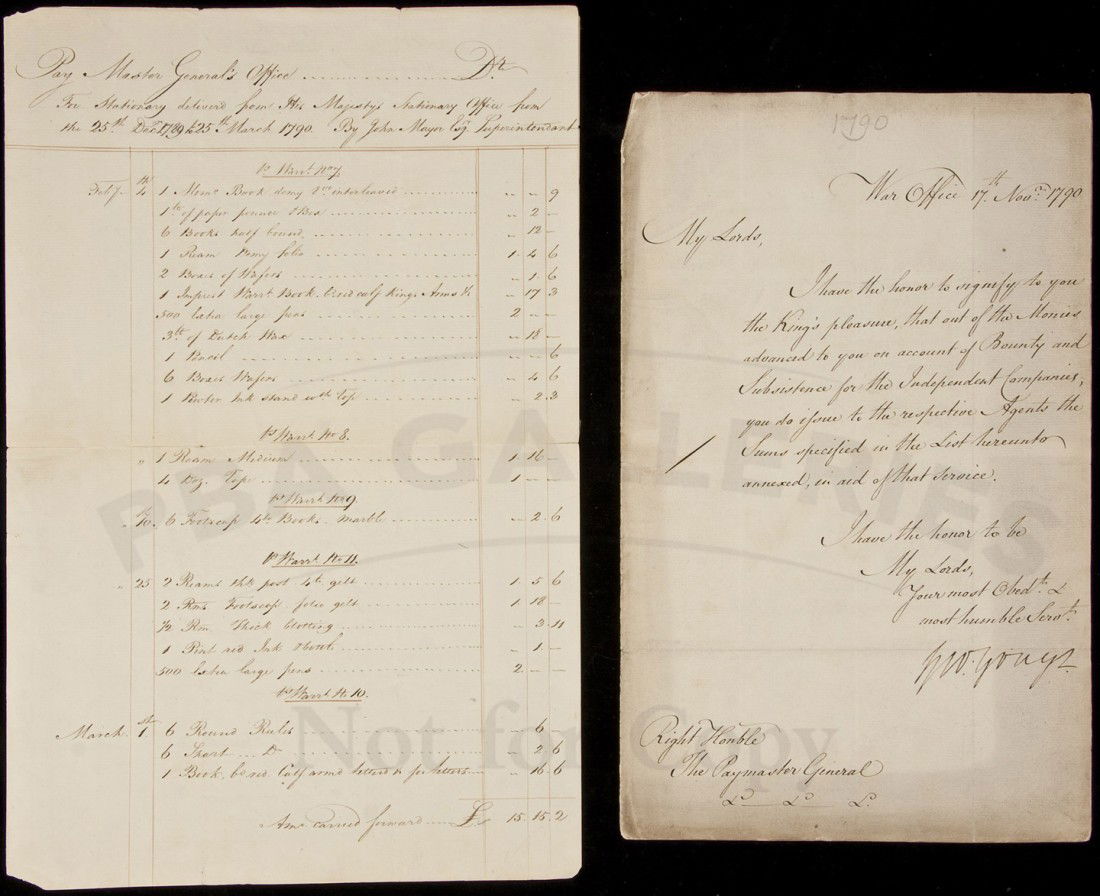 Pay Master General's Office ............ Dr.
For Stationary deliverd from His Majestys Stationary Office from
the 25th Decr 1789 to 25th March 1790. By John Mayor Esqr. Superintendant
Pr Warrt No 7
Feby. 4th 1 Memo Book demy 8vo interleaved ............ " " 9
of paper pounce & Box ............ " 2 —
6 Books half bound ............ " 12 —
1 Ream Demy folio ............ 1 4 6
2 Boxes of Wafers ............ " 1 6
1 Imprest Warrt. Book bd red calf Kings Arms &c " 17 3
500 Extra large pens ............ 2 — —
of Dutch Wax ............ " 18 —
1 Pencil ............ " " 6
6 Boxes Wafers ............ " 4 6
1 Pewter Ink stand wth top ............ " 2 3
Pr Warrt No 8.
" 1 Ream Medium ............ 1 16 —
4 Doz. Tape ............ 1 — —
Pr Warrt No 9
" 10th 6 Foolscap 4to Books marble ............ " 2 6
Pr Warrt No 11.
" 25 2 Reams thk post 4to gilt ............ 1 5 6
2 Rms Foolscap folio gilt ............ 1 18 —
1/2 Rm Thick blotting ............ " 3 11
1 Pint red Ink & bottle ............ " 1 —
500 Extra large pens ............ 2 — —
Pr Warrt No 10.
March 1st 6 Round Rules ............ " 6 —
6 Short Do ............ " 2 6
1 Book bd red Calf and letterd for letters ............ " 16 6
Amo carried forward ............ £ 15 15 2
1790
War Office 17th Novr. 1790
My Lords,
I have the honor to signify to you
the King's pleasure, that out of the Monies
advanced to you on account of Bounty and
Subsistence for the Independent Companies,
you do issue to the respective Agents the
Sums specified in the List hereunto
annexed, in aid of that Service.
I have the honor to be
My Lords,
Your most Obedt. &
most humble Servt.
Geo. Yonge
Right Honble
The Paymaster General
&c &c &c
PBA GALLERIES
Not for Copy